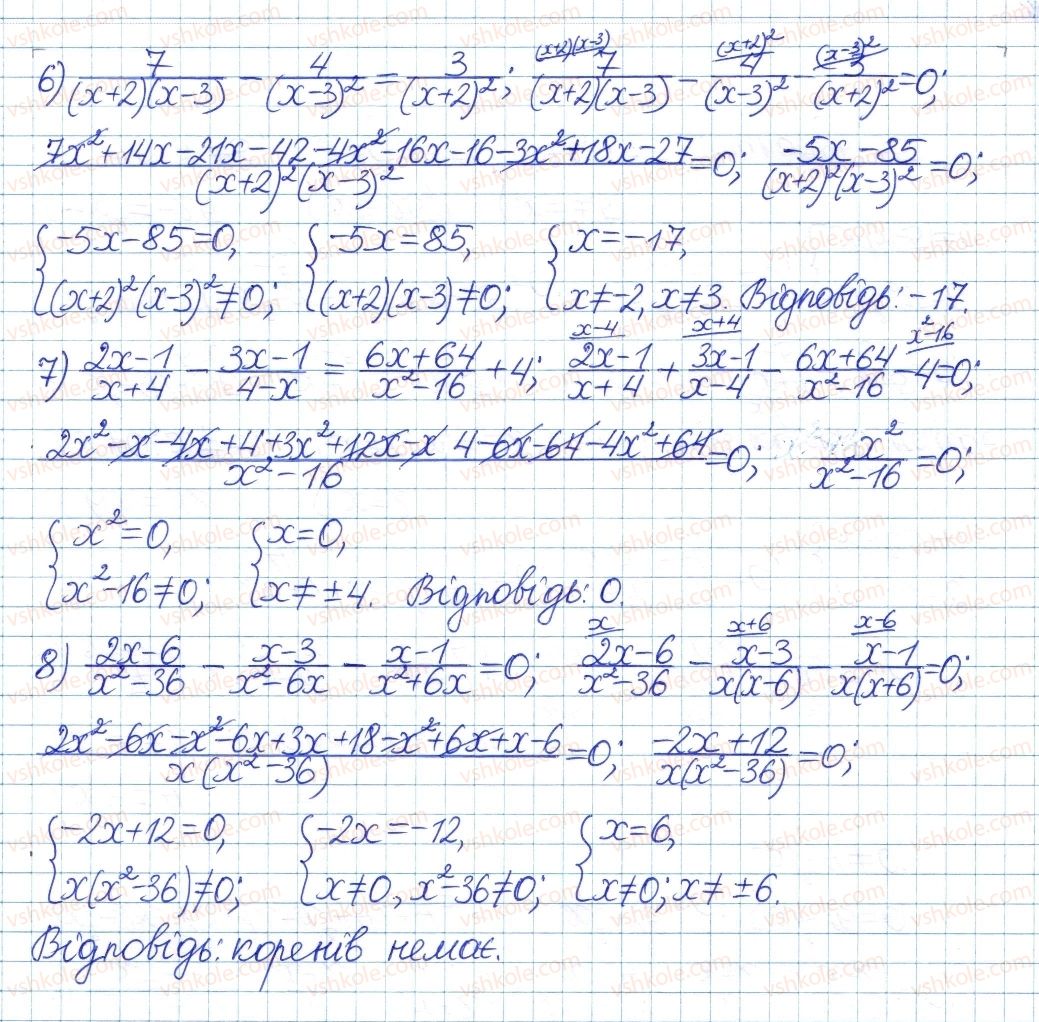 6) 7/((x+2)(x-3)) - 4/(x-3)² = 3/(x+2)²; (x+2)(x-3) 7/((x+2)(x-3)) - (x+2)² 4/(x-3)² - (x-3)² 3/(x+2)² = 0;
(7x²+14x-21x-42-4x²-16x-16-3x²+18x-27)/((x+2)²(x-3)²) = 0; (-5x-85)/((x+2)²(x-3)²) = 0;
{-5x-85=0, {-5x=85, {x=-17,
(x+2)²(x-3)²≠0; (x+2)(x-3)≠0; x≠-2, x≠3. Відповідь: -17.
7) (2x-1)/(x+4) - (3x-1)/(4-x) = (6x+64)/(x²-16) + 4; x-4 (2x-1)/(x+4) + x+4 (3x-1)/(x-4) - (6x+64)/(x²-16) - x²-16 4=0;
(2x²-x-4x... +4+3x²+12x-x 4-6x-64-4x²+64)/(x²-16) = 0; x²/(x²-16) = 0;
{x²=0, {x=0,
x²-16≠0; x≠±4. Відповідь: 0.
8) (2x-6)/(x²-36) - (x-3)/(x²-6x) - (x-1)/(x²+6x) = 0; x (2x-6)/(x²-36) - x+6 (x-3)/(x(x-6)) - x-6 (x-1)/(x(x+6)) = 0;
(2x²-6x-x²-6x+3x+18-x²+6x+x-6)/(x(x²-36)) = 0; (-2x+12)/(x(x²-36)) = 0;
{-2x+12=0, {-2x=-12, {x=6,
x(x²-36)≠0; x≠0, x²-36≠0; x≠0; x≠±6.
Відповідь: коренів немає.